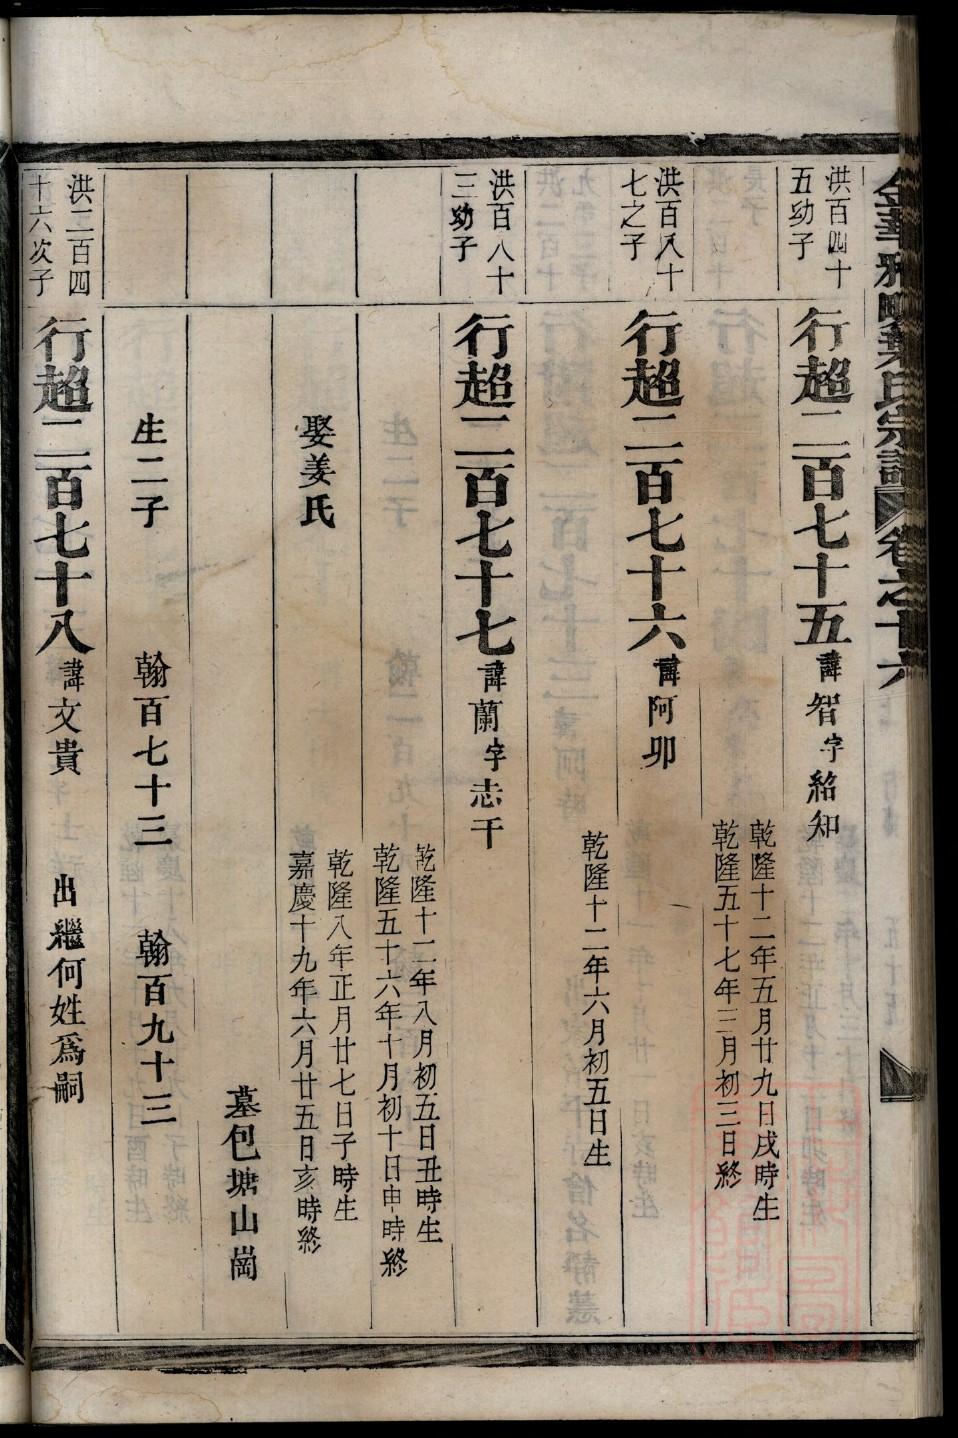 宗譜
卷之十六
洪百四十
五幼子
行超二百七十五 諱智字紹知
乾隆十二年五月廿九日戌時生
乾隆五十七年三月初三日終
洪百八十
七之子
行超二百七十六 諱阿卯
乾隆十二年六月初五日生
洪百八十
三幼子
行超二百七十七 諱蘭字志干
乾隆十二年八月初五日丑時生
乾隆五十六年十月初十日申時終
娶姜氏
乾隆八年正月廿七日子時生
嘉慶十九年六月廿五日亥時終
墓包塘山崗
生二子 翰百七十三 翰百九十三
洪二百四
十六次子
行超二百七十八 諱文貴 出繼何姓爲嗣